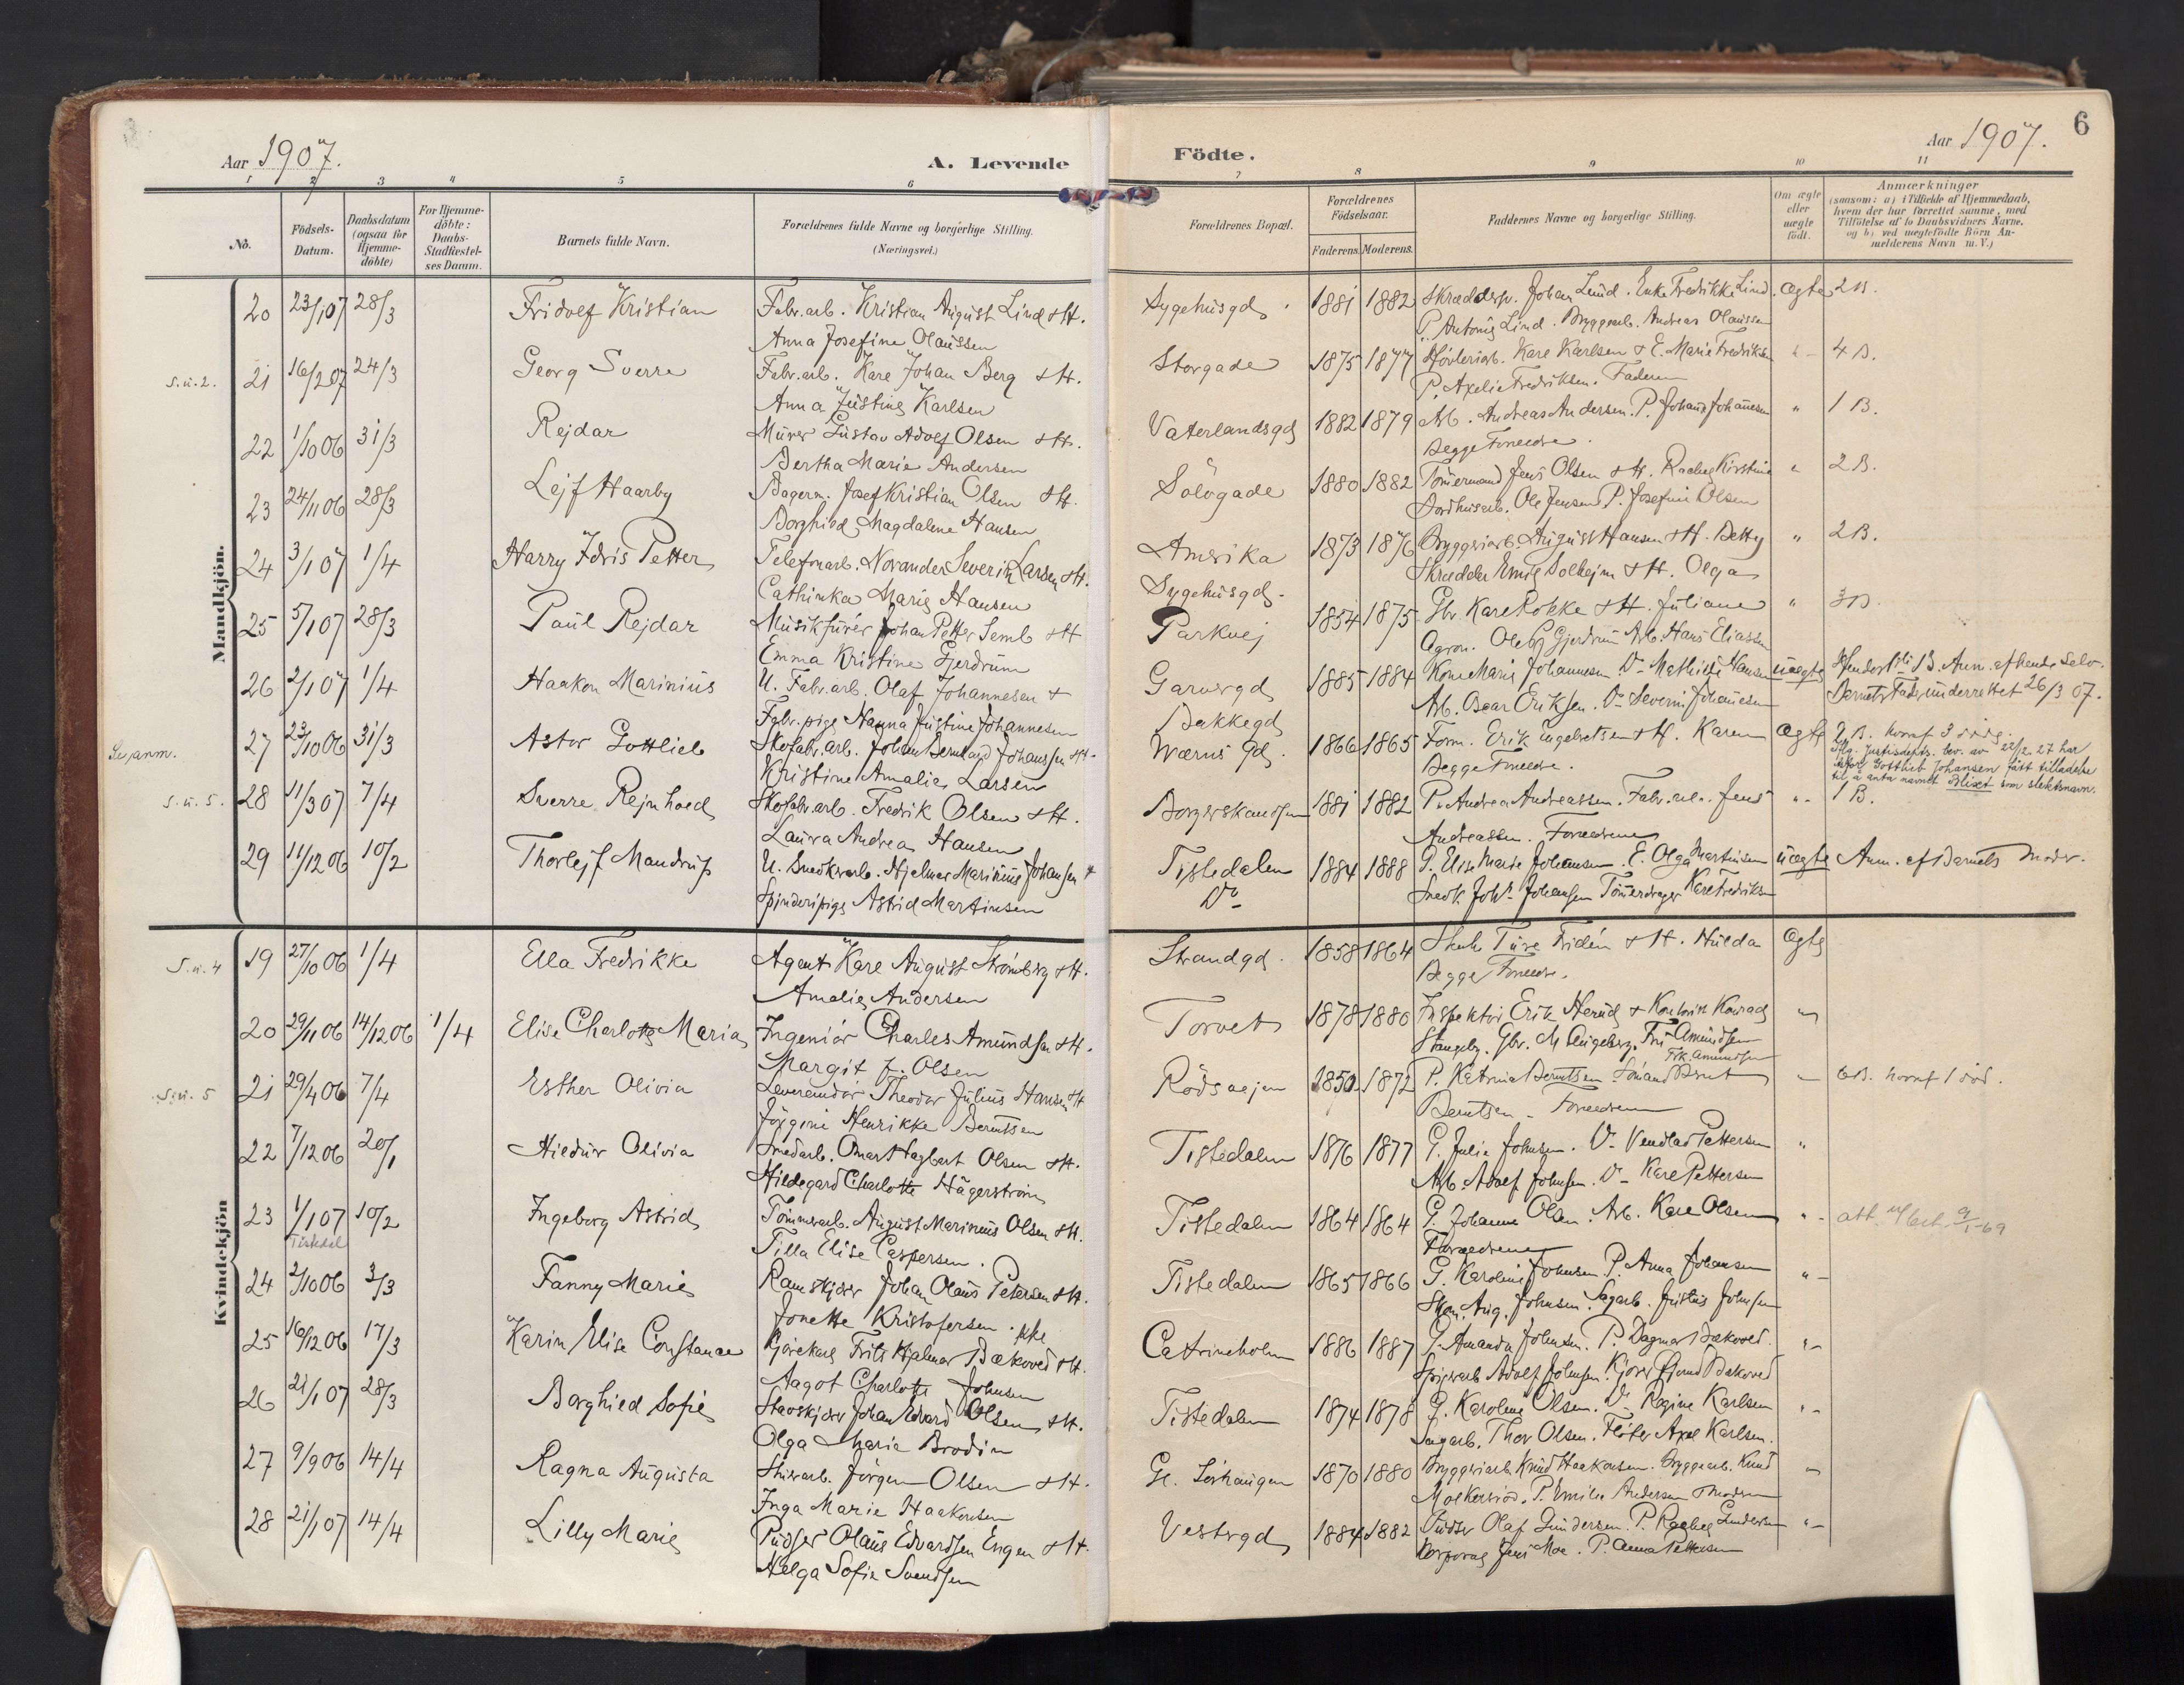 Aar 1907.
A. Levende
1 2 3 4 5 6
No.
Födsels-Datum.
Daabsdatum (ogsaa for Hjemme-döbte)
For Hjemme-döbte: Daabs-Stadfæstel-ses Datum.
Barnets fulde Navn.
Forældrenes fulde Navne og borgerlige Stilling.
(Næringsvei.)
Mandkjön.
20 23/1 07 28/3 Fridolf Kristian Fabr.arb. Kristian August Lind & H.
Anna Josefine Olaussen
s.u.2. 21 16/2 07 24/3 Georg Sverre Fabr.arb. Karl Johan Berg & H.
Anna Justine Karlsen
22 1/10 06 31/3 Rejdar Murer Gustav Adolf Olsen & H.
Bertha Marie Andersen
23 24/11 06 28/3 Lejf Haarby Bagerm. Josef Kristian Olsen & H.
Borghild Magdalene Hansen
24 3/1 07 1/4 Harry Idris Petter Telefonarb. Norander Severin Larsen & H.
Cathinka Marie Hansen
25 5/1 07 28/3 Paul Rejdar Musikfurér Johan Petter Semb & H
Emma Kristine Gjerdrum
26 2/1 07 1/4 Haakon Marinius U. Fabr.arb. Olaf Johannesen &
Fabr.pige Hanna Justine Johannesen
Se anm. 27 23/10 06 31/3 Astor Gottlieb Skofabr.arb. Johan Bernhard Johansen & H.
Kristine Amalie Larsen
s.u.5. 28 11/3 07 7/4 Sverre Rejnhold Skofabr.arb. Fredrik Olsen & H.
Laura Andrea Hansen
29 11/12 06 10/2 Thorlejf Mandrup U. Snedkerarb. Hjelmar Marinius Johansen &
Spinderipige Astrid Martinsen
Kvindekjön
s.u.4 19 27/10 06 1/4 Ella Fredrikke Agent Karl August Strömberg & H.
Amalie Andersen
20 29/11 06 14/12 06 1/4 Elise Charlotte Marie Ingeniör Charles Amundsen & H.
Margit F. Olsen
s.u. 5 21 29/4 06 7/4 Esther Olivia Leverandör Theodor Julius Hansen & H
Jörgine Henrikke Berntsen
22 7/12 06 20/1 Hildur Olivia Smedarb. Omar Dagbert Olsen & H.
Hildegard Charlotte Hägerström
23 1/1 07 10/2 Ingeborg Astrid Tömmerarb. August Marinius Olsen & H.
Tistedal
Tilla Elise Caspersen.
24 2/10 06 3/3 Fanny Marie Ramskjærer Johan Olaus Petersen & H.
Jonette Kristofersen.
25 16/12 06 17/3 Karin Elise Constance Kjörekarl Fritz Hjalmar Bakoved & H.
Aagot Charlotte Johnsen
26 21/1 07 28/3 Borghild Sofie Stavskjærer Johan Edvard Olsen & H.
Olga Marie Brodin
27 9/9 06 14/4 Ragna Augusta Stuerarb. Jörgen Olsen & H.
Inga Marie Haakonsen
28 21/1 07 14/4 Lilly Marie Pudser Olaus Edvardsen Engen & H.
Helga Sofie Svendsen
6
Födte.
Aar 1907.
7 8 9 10 11
Forældrenes Bopæl.
Forældrenes Födselsaar.
Faderens. Moderens.
Faddernes Navne og borgerlige Stilling.
Om ægte eller uægte födt.
Anmærkninger
(saasom: a) i Tilfælde af Hjemmedaab, hvem der har forrettet samme, med Tilföielse af to Daabsvidners Navne, og b) ved uægtefödte Börn Anmelderens Navn m. V.)
Sygehusgd. 1881 1882 Skræddersv. Johan Lund. Enke Fredrikke Lind. ægte 2 B.
P. Antonie Lind. Bryggearb. Andreas Olaussen
Storgade 1875 1877 Hövleriarb. Karl Karlsen & E. Marie Fredriksen " 4 B.
P. Axelie Fredriksen. Faderen
Vaterlandsgd 1882 1879 Arb. Andreas Andersen. P. Johanne Johannesen " 1 B.
Begge Forældre.
Sölvgade 1880 1882 Tömermand Jens Olsen & H. Rachel Kirstine " 2 B.
Ole Jensen P. Josefine Olsen
Amerika 1873 1876 Bryggeriarb. August Hansen & H. Betty " 2 B.
Sygehusgd. Skrædder Emil Solhejm & H. Olga
Parkvej 1854 1875 Gbr. Karl Rokke & H. Juliane " 3 B.
Agron. Ole Gjerdrum Arb. Hans Eliassen
Garvergd 1885 1884 Kone Marie Johannesen Do Mathilde Hansen uægte Hendes 1 B. Anm. af hende selv.
Arb. Oscar Eriksen. Do Severin Johannesen Barnets Fader underrettet 26/3 07.
Bakkegd
Wærns Gd. 1866 1865 Form. Erik Engebretsen & H. Karen ægte 9 B. hvoraf 3 död.
Begge Forældre. Iflg. Justisdepts. bev. av 22/2.27 har
Astor Gottlieb Johansen fått tilladelse
til å anta navnet Blixt som slektsnavn.
Borgerskandsen 1881 1882 P. Andrea Andreassen. Fabr.arb. Jens " 1 B.
Andreassen. Forældrene
Tistedalen 1884 1888 G. Elise Marie Johansen. E. Olga Martinsen uægte Anm. af Barnets Moder.
Do Snedk. Johs. Johansen Tömerdrager Karl Fredriksen
Strandgd. 1858 1864 Ture Fridén & H. Hulda ægte
Begge Forældre.
Torvet 1878 1880 Inspektör Erik Herud & Kontorist Konrad "
Stangeby. Gbr. M. Engeberg. Fru Amundsen
Frk. Amundsen
Rödsvejen 1850 1872 P. Katrine Berntsen. Sömand Bernt " 6 B. hvoraf 1 död.
Berntsen. Forældrene
Tistedalen 1876 1877 G. Julie Johnsen. Do Vendla Pettersen "
Arb. Adolf Johnsen. Do Karl Pettersen
Tistedalen 1864 1864 G. Johanne Olsen. Arb. Karl Olsen " att. utst. 9/1-69
Forældrene
Tistedalen 1865 1866 G. Karoline Johnsen P. Anna Johansen "
Skom. Aug. Johnsen. Sagarb. Justus Johnsen
Catrineholm 1886 1887 G. Amanda Johnsen. P. Dagmar Bakoved. "
Spigerarb. Adolf Johnsen. Kjörer Bakoved
Tistedalen 1874 1878 G. Karoline Olsen. Do Ragine Karlsen "
Sagarb. Thor Olsen. Flöter Axel Karlsen.
Gl. Sörhaugen 1870 1880 Bryggeriarb. Knud Haakonsen. Bryggearb. Knud "
P. Emilie Andersen & Moderen
Vestergd 1884 1882 Pudser Olaf Gundersen. P. Rachel Gundersen "
Korporal Jens Moe. P. Anna Pettersen